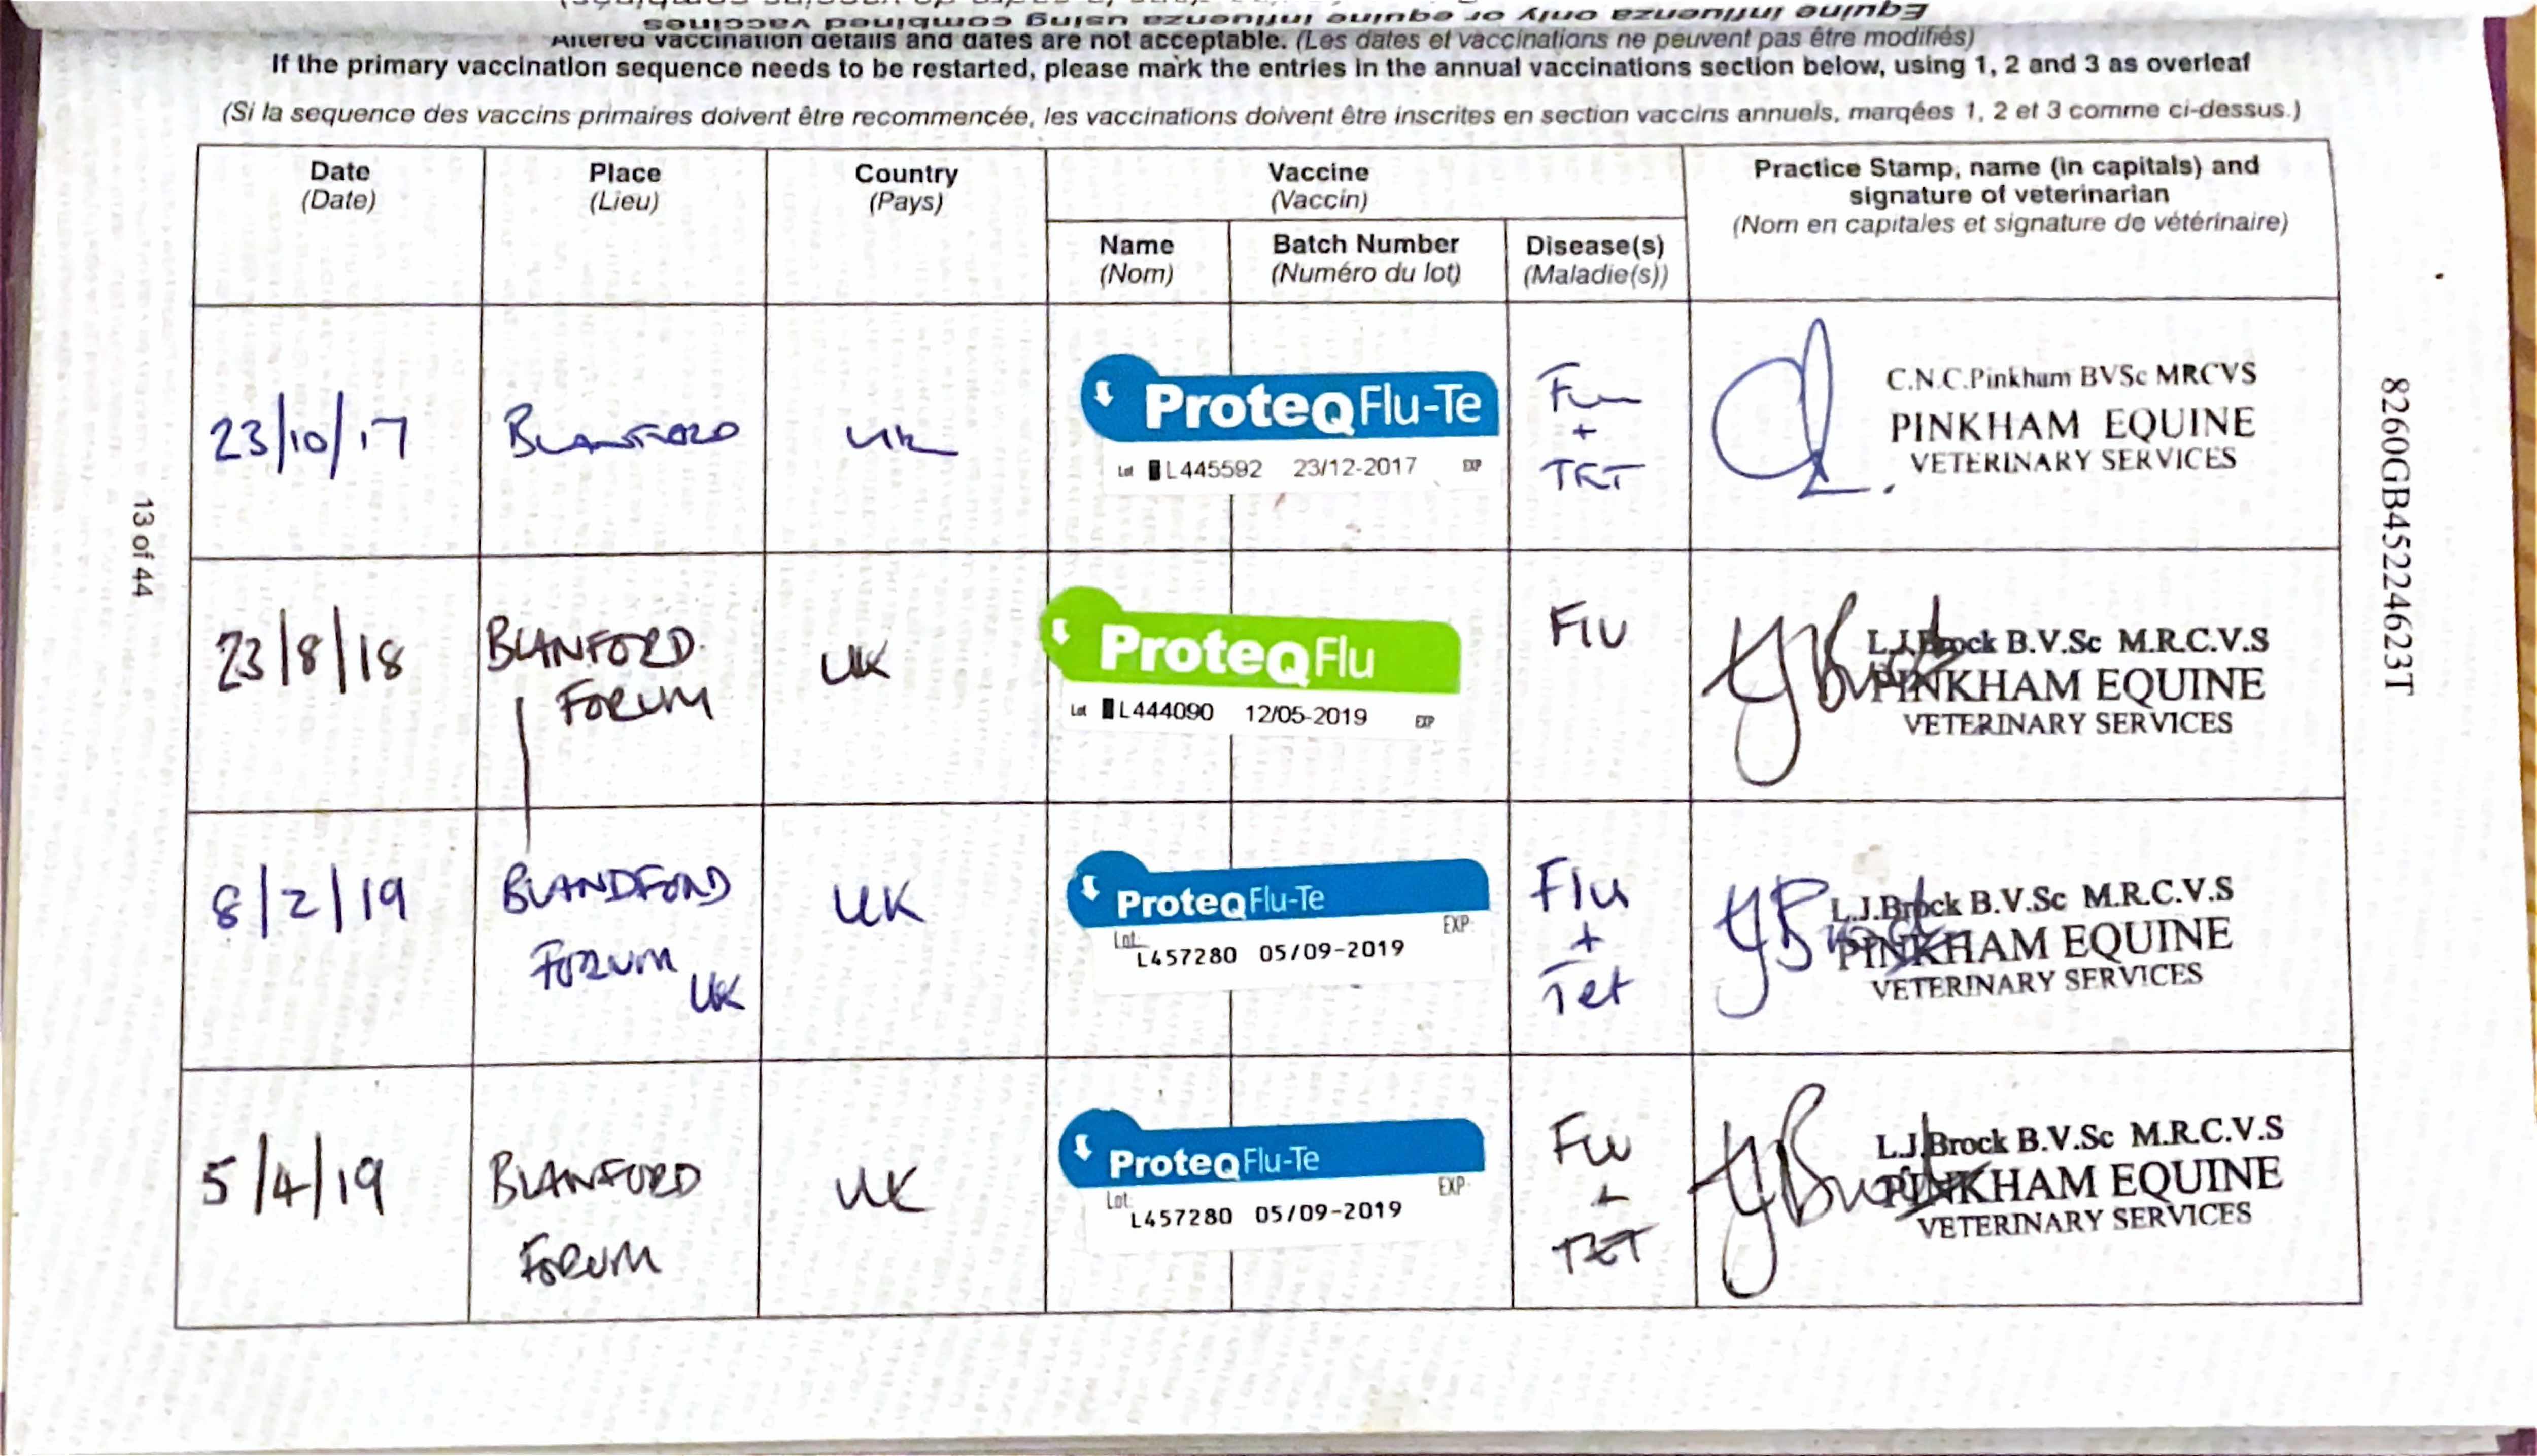 Equine influenza only or equine influenza using combined vaccines
Altered vaccination details and dates are not acceptable. (Les dates et vaccinations ne peuvent pas être modifiés)
If the primary vaccination sequence needs to be restarted, please mark the entries in the annual vaccinations section below, using 1, 2 and 3 as overleaf
(Si la sequence des vaccins primaires doivent être recommencée, les vaccinations doivent être inscrites en section vaccins annuels, marqées 1, 2 et 3 comme ci-dessus.)
Date
(Date)
Place
(Lieu)
Country
(Pays)
Vaccine
(Vaccin)
Name
(Nom)
Batch Number
(Numéro du lot)
Disease(s)
(Maladie(s))
Practice Stamp, name (in capitals) and
signature of veterinarian
(Nom en capitales et signature de vétérinaire)
23/10/17
UK
ProteqFlu-Te
Lot L445592 23/12-2017 EXP
Flu
+
TET
C.N.C.Pinkham BVSc MRCVS
PINKHAM EQUINE
VETERINARY SERVICES
23/8/18
BLANFORD
FORUM
UK
ProteqFlu
Lot L444090 12/05-2019 EXP
Flu
L.J.Brock B.V.Sc M.R.C.V.S
PINKHAM EQUINE
VETERINARY SERVICES
8/2/19
BLANDFORD
FORUM
UK
UK
ProteqFlu-Te
Lot EXP
L457280 05/09-2019
Flu
+
Tet
L.J.Brock B.V.Sc M.R.C.V.S
PINKHAM EQUINE
VETERINARY SERVICES
5/4/19
BLANFORD
FORUM
UK
ProteqFlu-Te
Lot EXP
L457280 05/09-2019
Flu
+
TET
L.J.Brock B.V.Sc M.R.C.V.S
PINKHAM EQUINE
VETERINARY SERVICES
13 of 44
8260GB45224623T